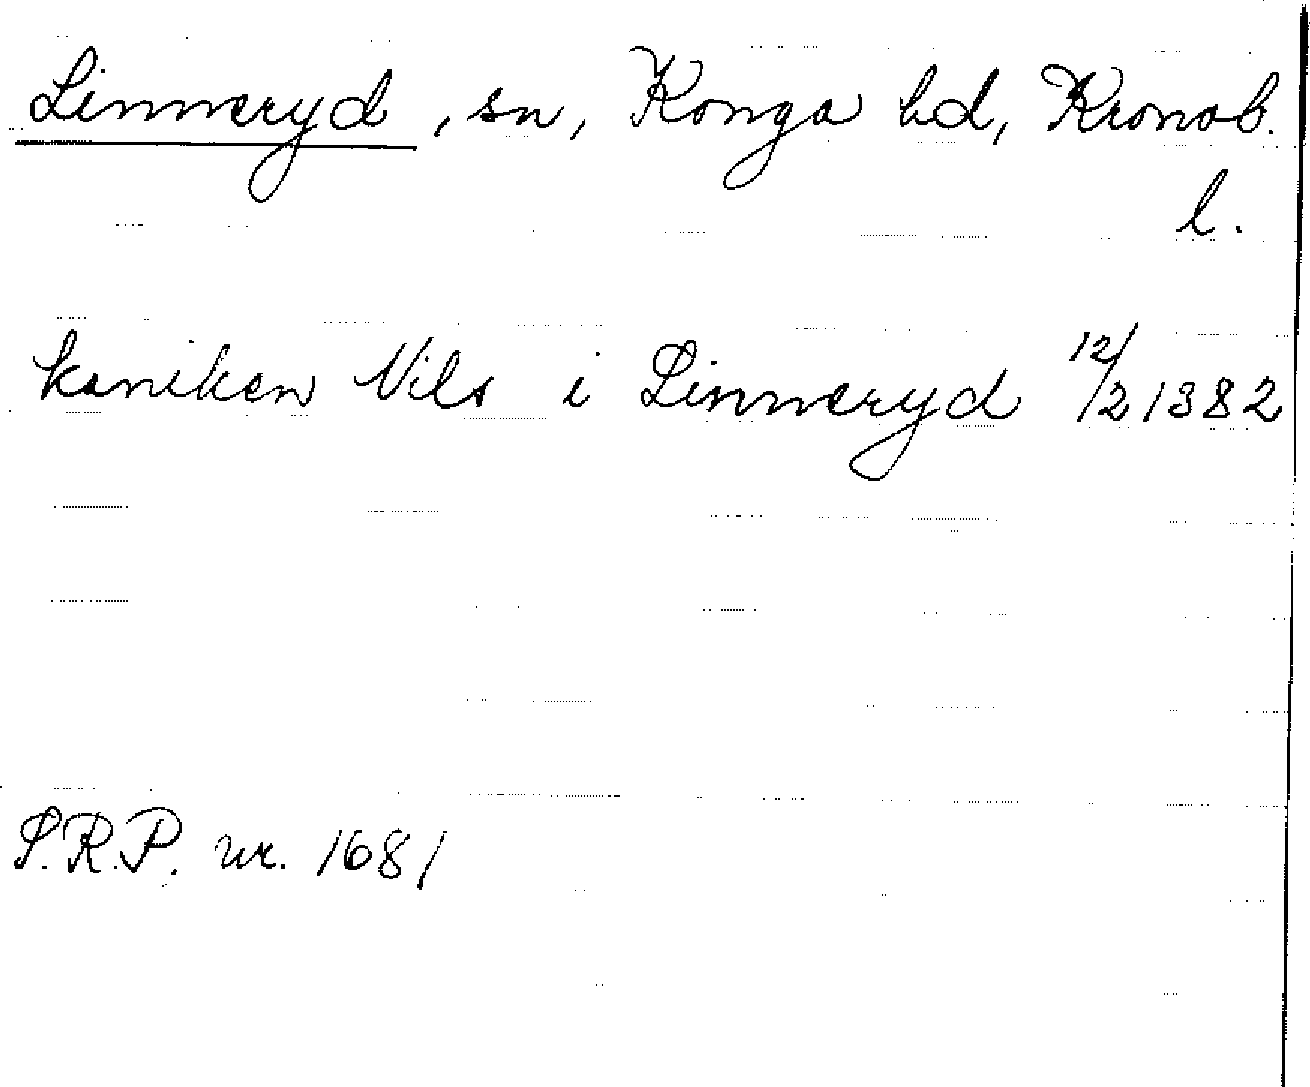 Linneryd, sn, Konga hd, Kronob.
l.
kaniken Nils i Linneryd 12/2 1382
S.R.P. nr. 1681